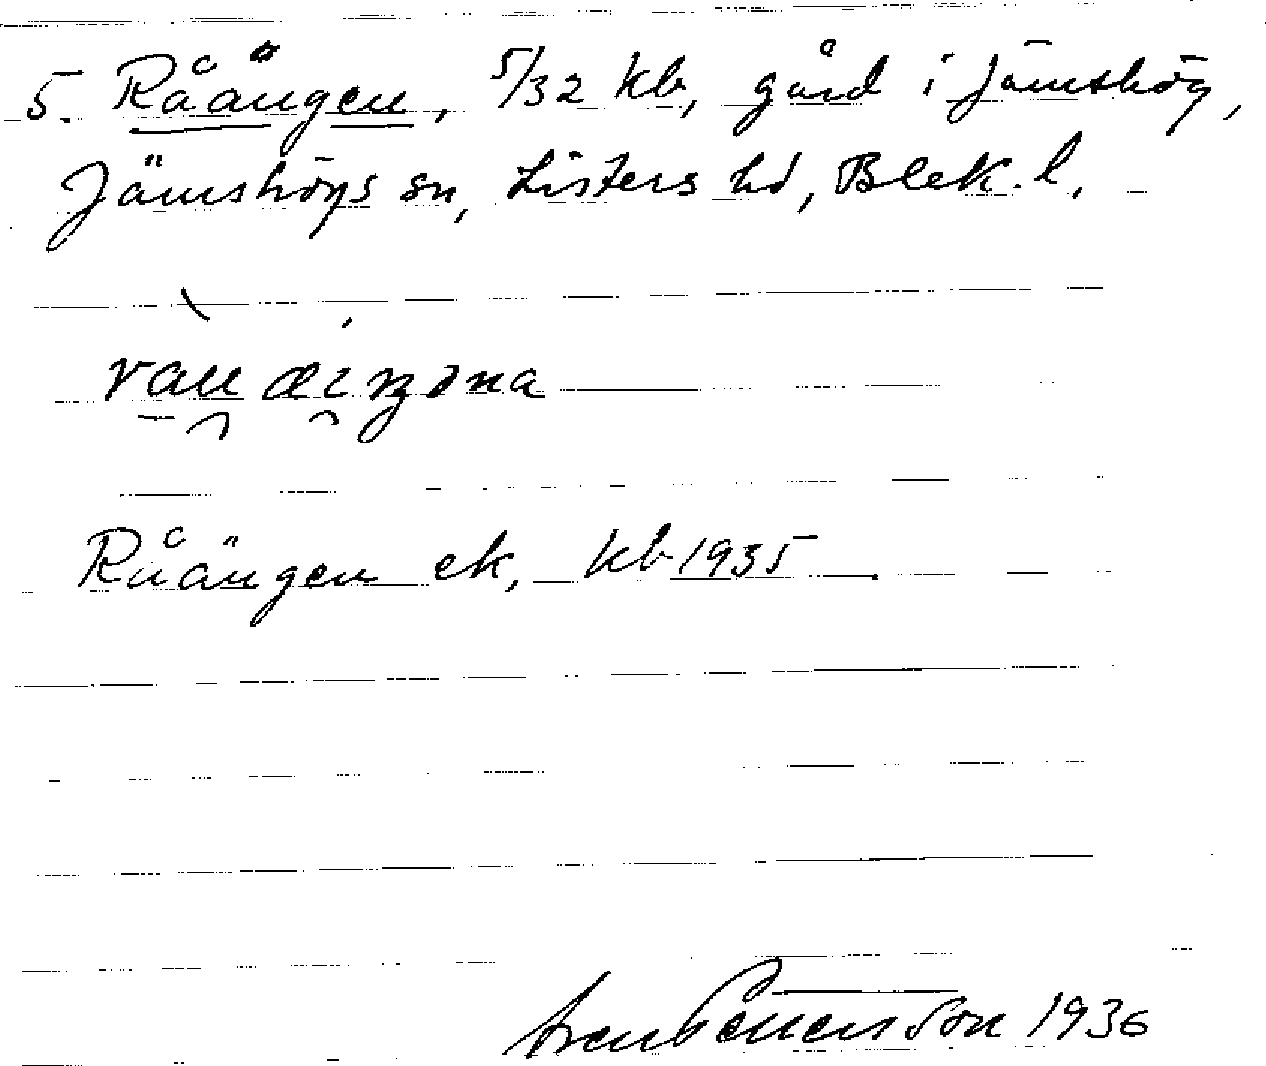 5. Råängen, 5/32 kb, gård i Jämshög,
Jämshögs sn, Listers hd, Blek. l.
Råängen ek, kb 1935
1936